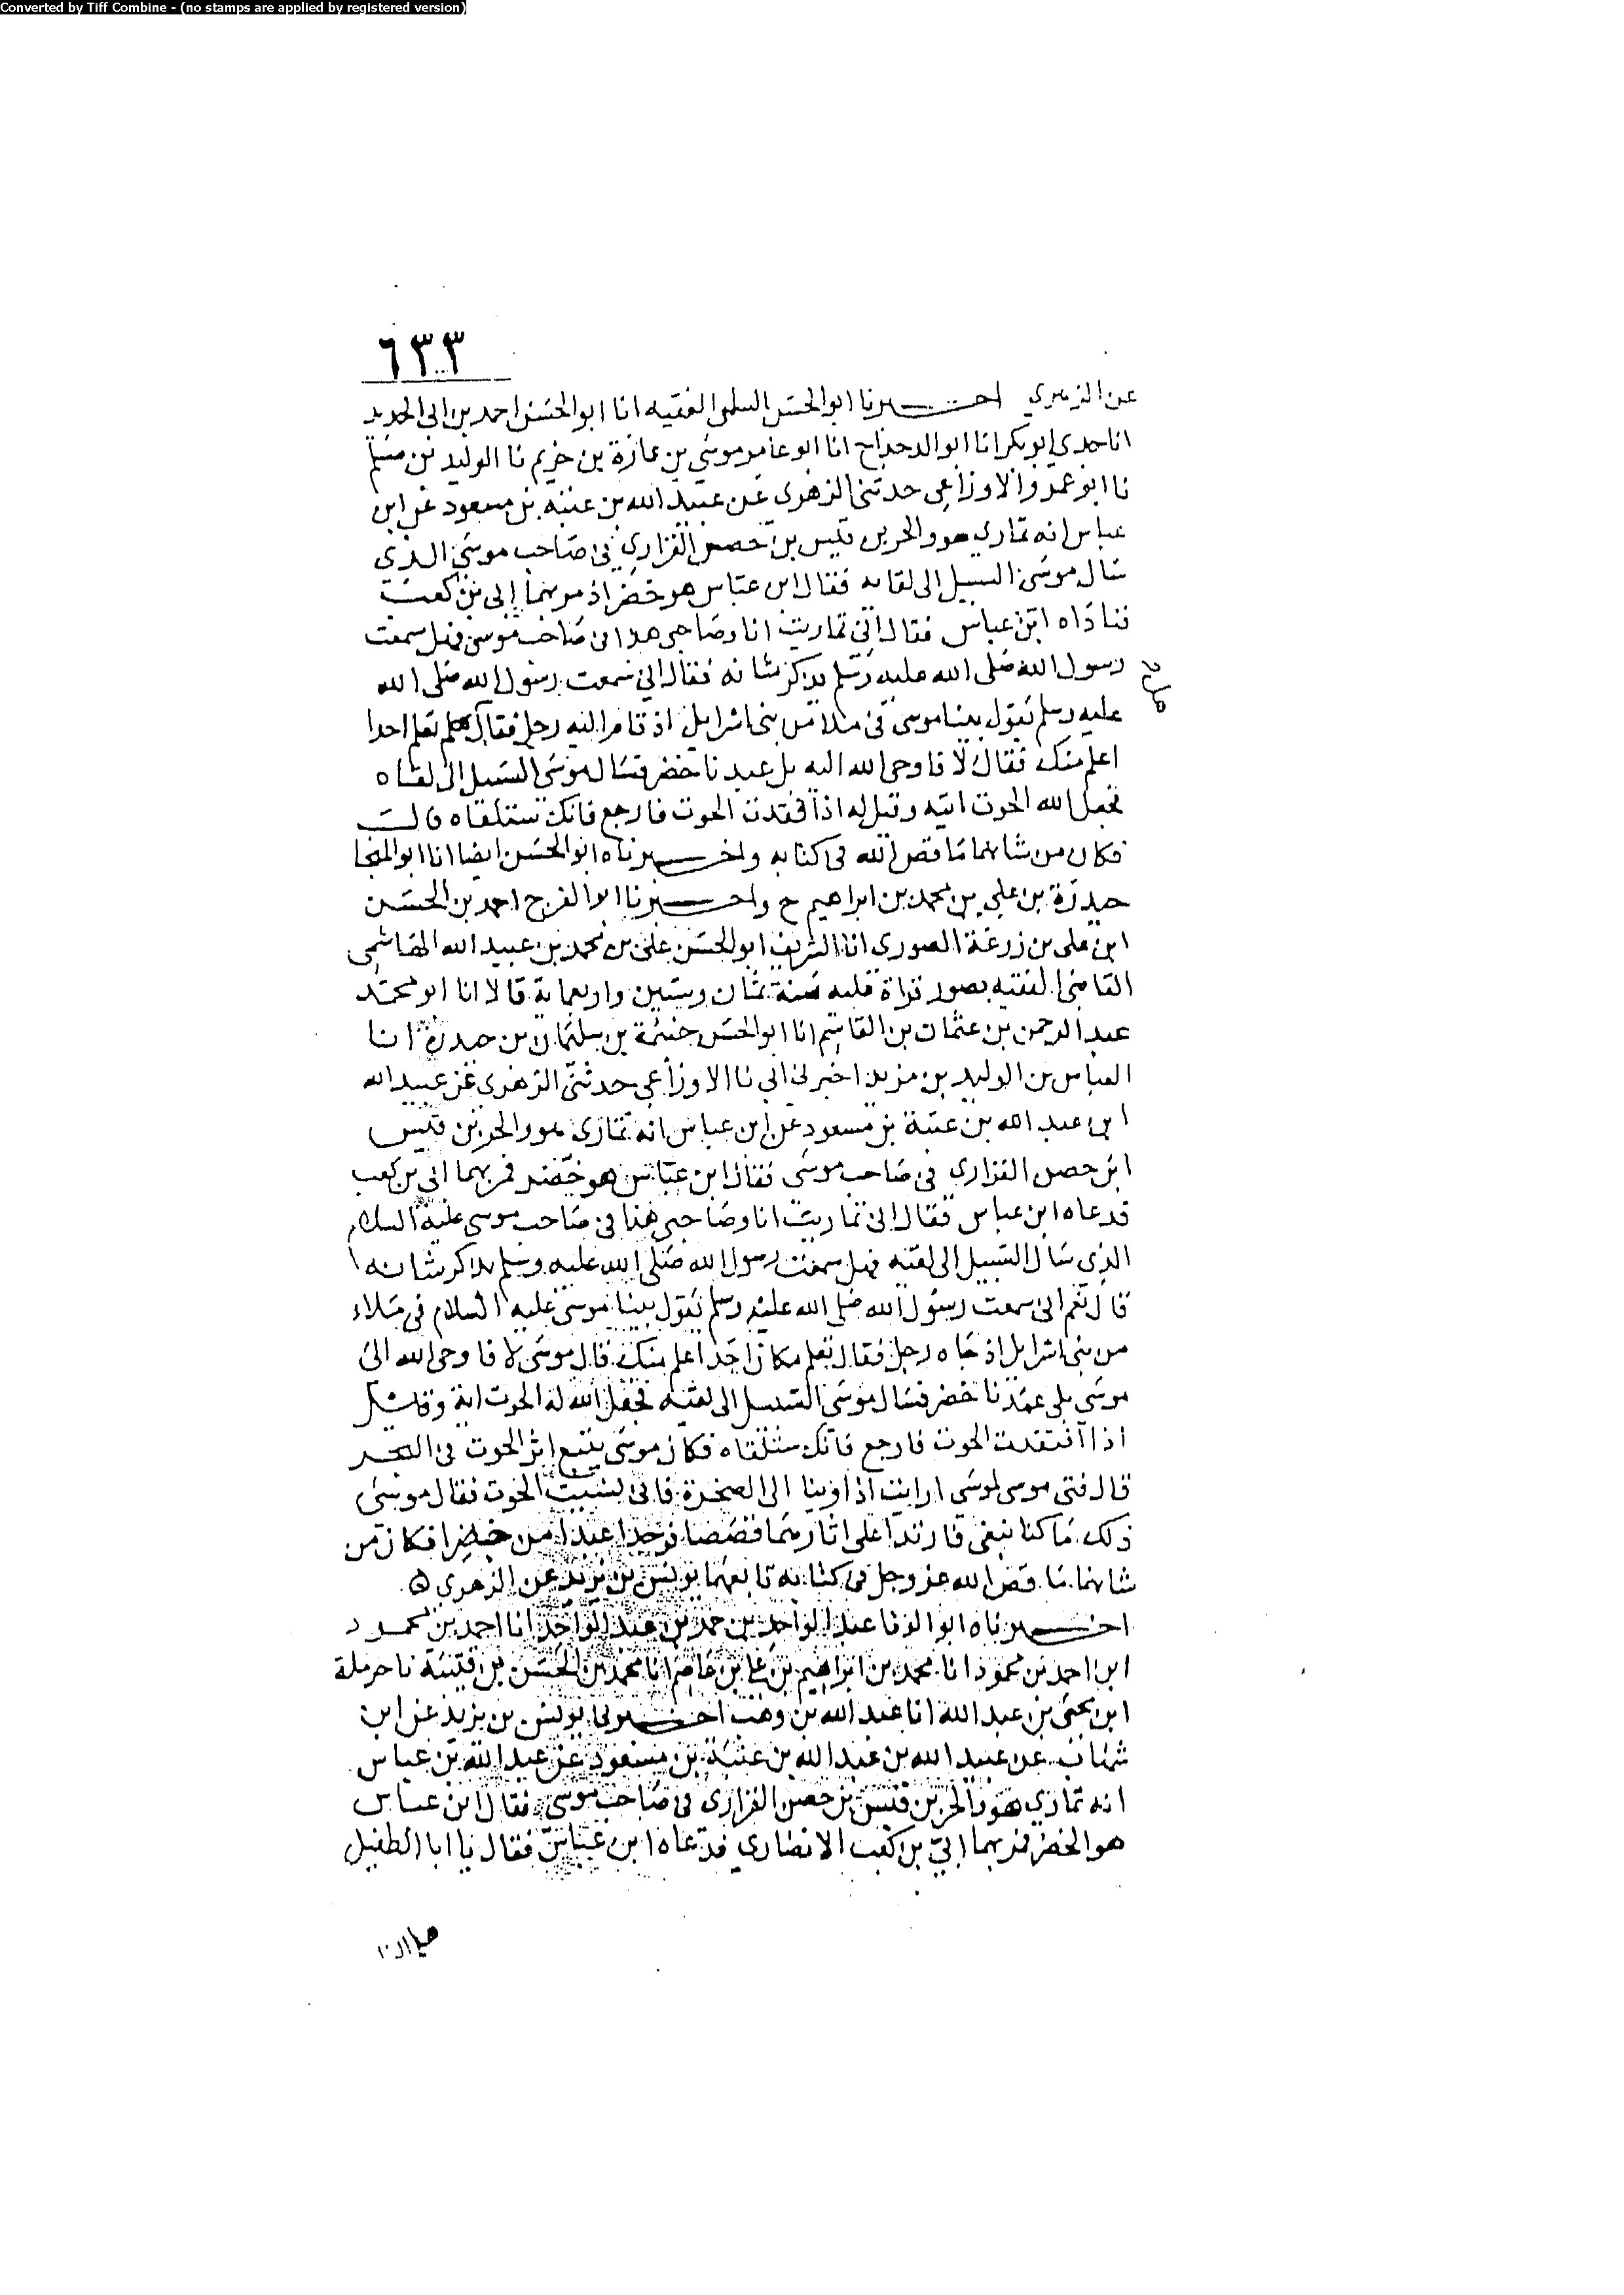 Converted by Tiff Combine - (no stamps are applied by registered version)
٦٣٣
عن الزهري اخبرنا ابو الحسن السلمي الفقيه انا ابو الحسن احمد بن ابي الحديد
انا جدي ابو بكر انا ابو الدحداح انا ابو عامر موسى بن عامر بن خريم نا الوليد بن مسلم
نا ابو عمرو الاوزاعي حدثني الزهري عن عبيد الله بن عتبة بن مسعود عن ابن
عباس انه تماري هو والحر بن قيس بن حصن الفزاري في صاحب موسى الذي
سال موسى السبيل الى لقايه فقال ابن عباس هو خضر اذ مر بهما ابي بن كعب
فناداه ابن عباس فقال اني تماريت انا وصاحبي هذا في صاحب موسى فهل سمعت
رسول الله صلى الله عليه وسلم يذكر شانه فقال اني سمعت رسول الله صلى الله
عليه وسلم يقول بينا موسى في ملا من بني اسرايل اذ قام اليه رجل فقال هل تعلم احدا
اعلم منك فقال لا فاوحى الله اليه بل عبدنا خضر فسال موسى السبيل الى لقاه
فجعل الله الحوت ايته وقيل له اذا فقدت الحوت فارجع فانك ستلقاه قالـ
فكان من شانهما ما قص الله في كتابه واخبرناه ابو الحسن ايضا انا ابو المنجا
حيدرة بن علي بن محمد بن ابراهيم ح واخبرنا ابو الفرج احمد بن الحسن
ابن علي بن زرعة الصوري انا الشريف ابو الحسن علي بن محمد بن عبيد الله الهاشمي
القاضي لفقيه بصور قراة عليه سنة ثمان وستين واربعماية قالا انا ابو محمد
عبد الرحمن بن عثمان بن القاسم انا ابو الحسن خيثمة بن سليمان بن حيدرة انا
العباس بن الوليد بن مزيد اخبرني ابي نا الاوزاعي حدثني الزهري عن عبيد الله
ابن عبد الله بن عتبة بن مسعود عن ابن عباس انه تماري هو والحر بن قيس
ابن حصن الفزاري في صاحب موسى فقال ابن عباس هو خضر فمر بهما ابي بن كعب
فدعاه ابن عباس فقال اني تماريت انا وصاحبي هذا في صاحب موسى عليه السلام
الذي سال السبيل الى لقيه فهل سمعت رسول الله صلى الله عليه وسلم يذكر شانه
قال نعم اني سمعت رسول الله صلى الله عليه وسلم يقول بينا موسى عليه السلام في ملاء
من بني اسرايل اذ جاه رجل فقال تعلم مكان احدا اعلم منك قال موسى لا فاوحى الله الى
موسى بلى عبدنا خضر فسال موسى السبيل الى لقيه فجعل الله له الحوت اية وقيل
اذا افتقدت الحوت فارجع فانك ستلقاه فكان موسى يتبع اثر الحوت في البحر
قال فتى موسى لموسى ارايت اذ اوينا الى الصخرة فاني نسيت الحوت فقال موسى
ذلك ما كنا نبغي فارتدا على اثارهما قصصا فوجدا خضرا فكان من
شانهما ما قص الله عز وجل في كتابه تابعهما يونس بن يزيد عن الزهري
اخبرناه ابو الوفا عبد الواحد بن حمد بن عبد الواحد انا احمد بن محمود
ابن احمد بن محمود انا محمد بن ابراهيم بن علي بن عاصم انا محمد بن الحسن بن قتيبة نا حرملة
ابن يحيى بن عبد الله انا عبد الله بن وهب اخبرني يونس بن يزيد عن ابن
شهاب عن عبيد الله بن عبد الله بن عتبة بن مسعود عن عبد الله بن عباس
انه تماري هو والحر بن قيس بن حصن الفزاري في صاحب موسى فقال ابن عباس
هو الخضر فمر بهما ابي بن كعب الانصاري فدعاه ابن عباس فقال يا ابا الطفيل